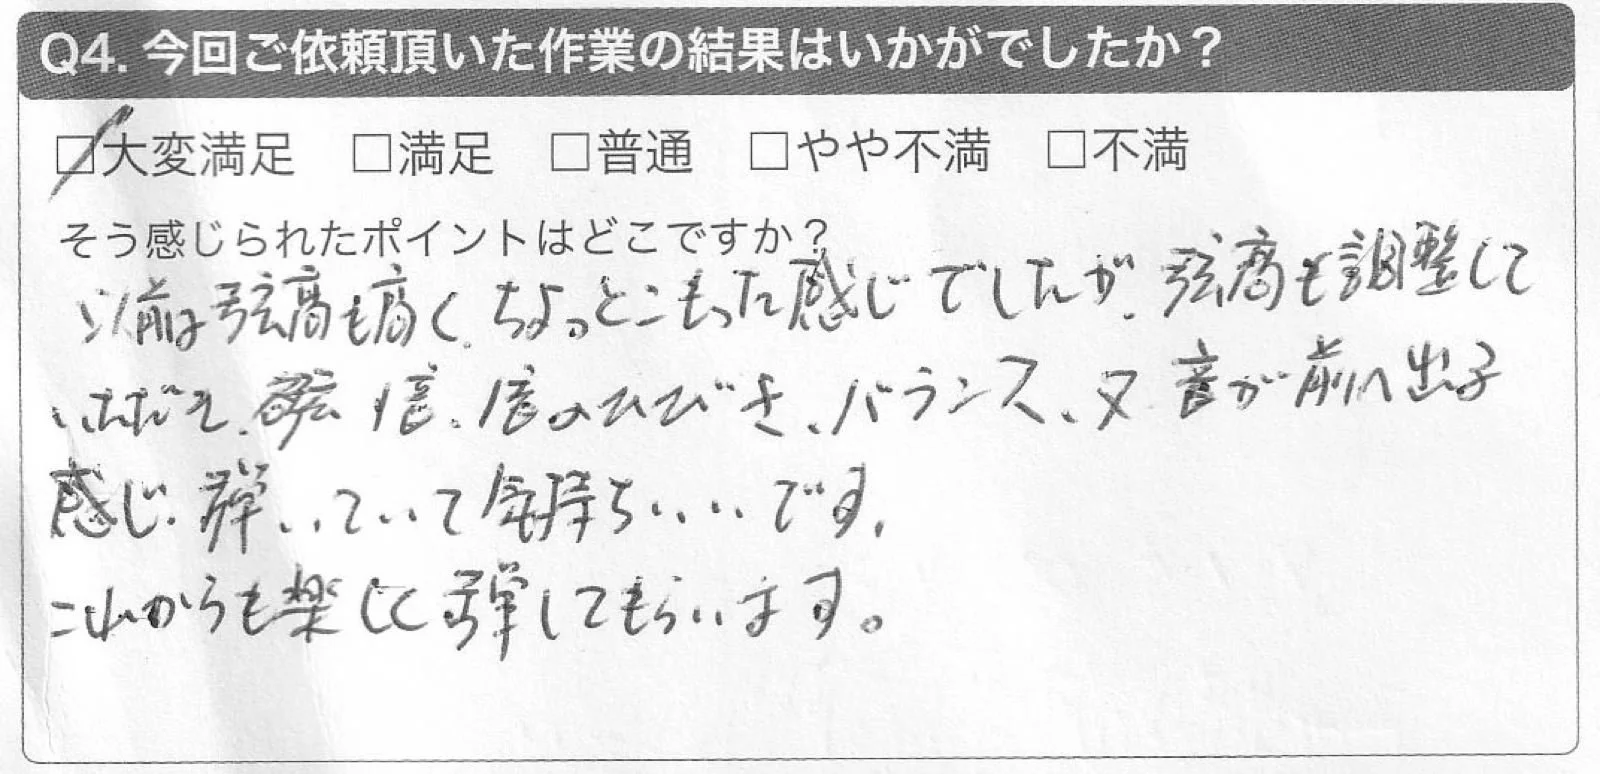 Q4. 今回ご依頼頂いた作業の結果はいかがでしたか？
□大変満足 □満足 □普通 □やや不満 □不満
そう感じられたポイントはどこですか？
以前は弦高も高く、ちょっとこもった感じでしたが、弦高も調整して
いただき、倍、倍のひびき、バランス、又音が前へ出る
感じ、弾いていて気持ちいいです。
これからも楽しく弾してもらいます。